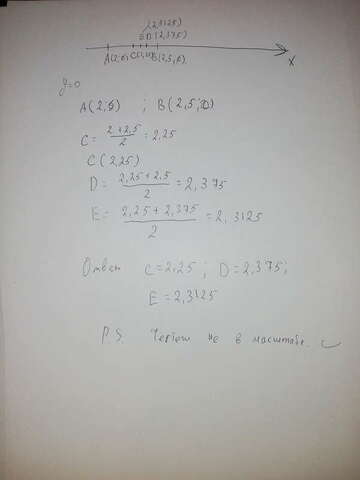 (2,3125)
D(2,375)
A(2,0)
B(2,5,0)
X
y=0
A(2,0) ; B(2,5;0)
C= 2+2,5 / 2 = 2,25
C(2,25)
D= 2,25+2,5 / 2 = 2,375
E= 2,25+2,375 / 2 = 2,3125
Ответ C=2,25; D=2,375;
E=2,3125
P.S. Чертеж не в масштабе.